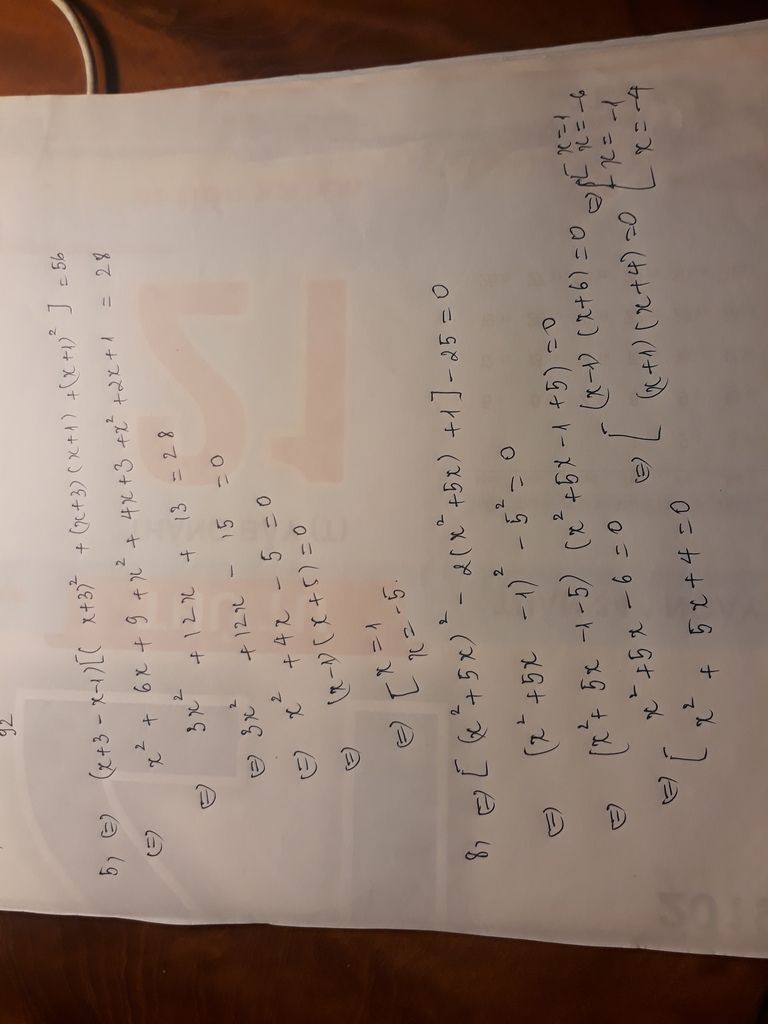 92
5, ⇔ (x+3-x-1)[(x+3)² + (x+3)(x+1) + (x+1)²] = 56
⇔ x² + 6x + 9 + x² + 4x + 3 + x² + 2x + 1 = 28
⇔ 3x² + 12x + 13 = 28
⇔ 3x² + 12x - 15 = 0
⇔ x² + 4x - 5 = 0
⇔ (x-1)(x+5) = 0
⇔ [ x = 1
x = -5.
8, ⇔ [(x² + 5x)² - 2(x² + 5x) + 1] - 25 = 0
⇔ (x² + 5x - 1)² - 5² = 0
⇔ (x² + 5x - 1 - 5)(x² + 5x - 1 + 5) = 0
⇔ [ x² + 5x - 6 = 0 ⇔ [ (x-1)(x+6) = 0 ⇔ [ [ x = 1
x = -6
x² + 5x + 4 = 0 (x+1)(x+4) = 0 [ x = -1
x = -4
12
2019